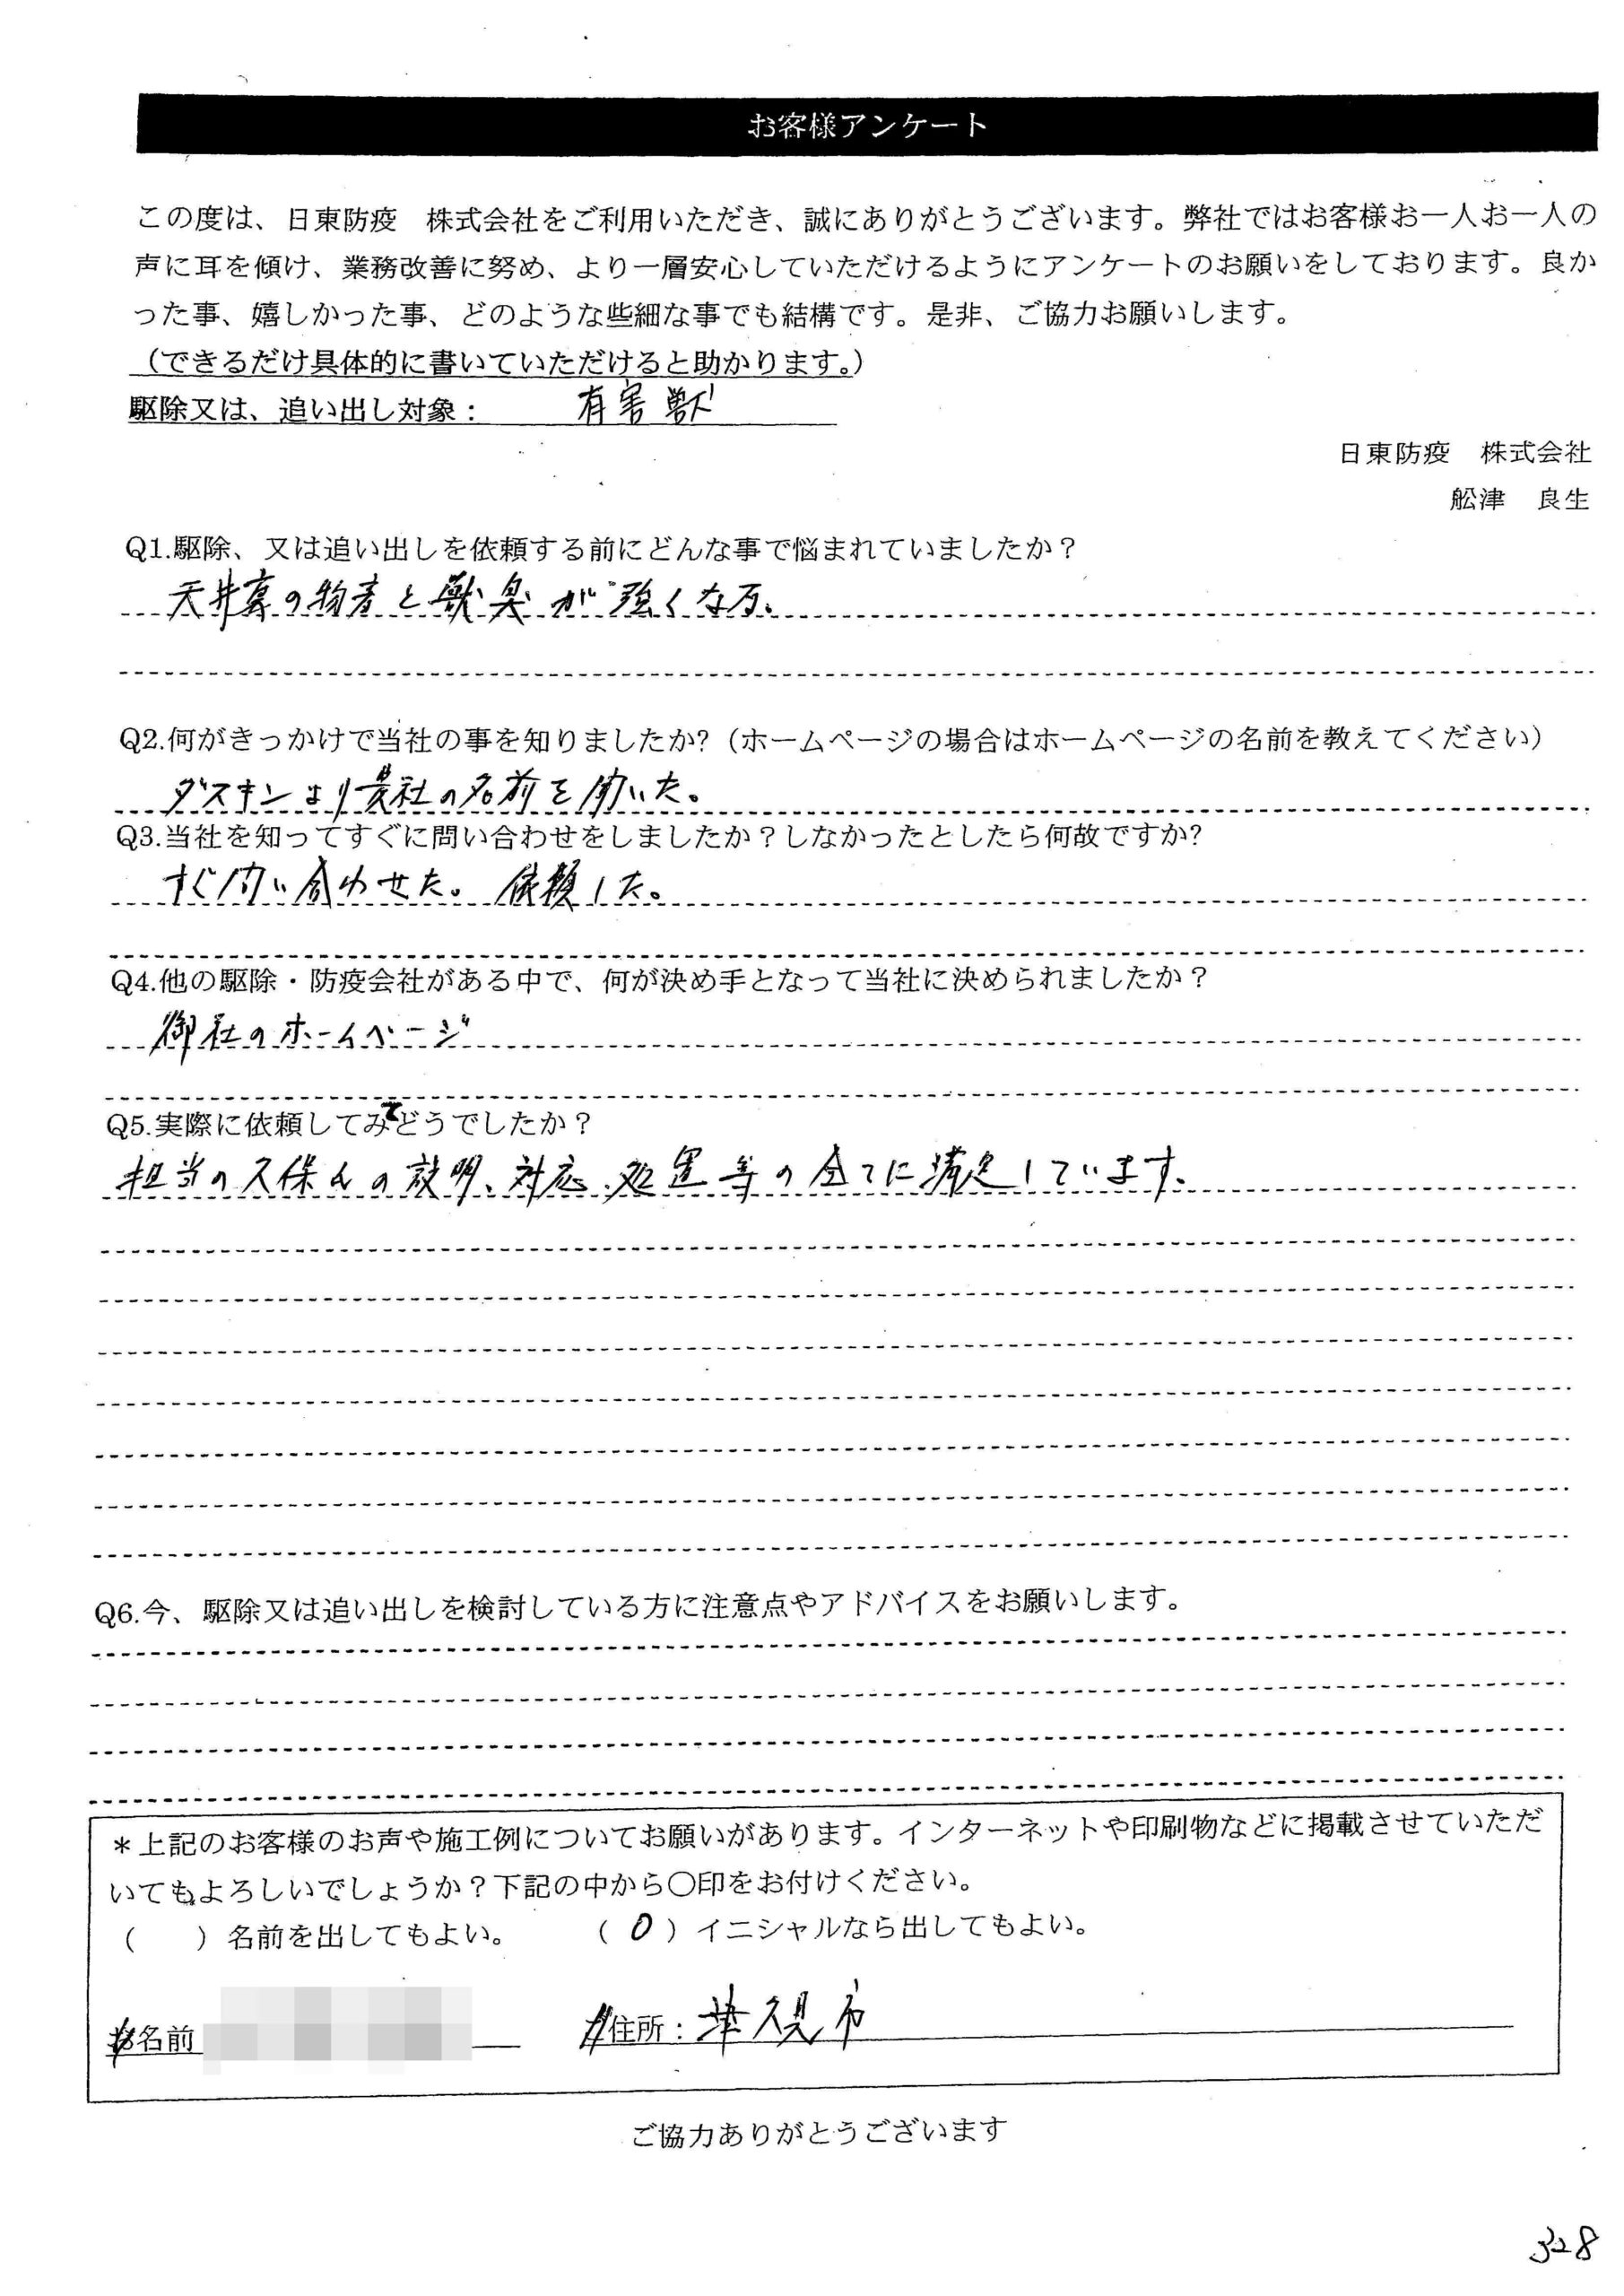 お客様アンケート
この度は、日東防疫　株式会社をご利用いただき、誠にありがとうございます。弊社ではお客様お一人お一人の
声に耳を傾け、業務改善に努め、より一層安心していただけるようにアンケートのお願いをしております。良か
った事、嬉しかった事、どのような些細な事でも結構です。是非、ご協力お願いします。
（できるだけ具体的に書いていただけると助かります。）
駆除又は、追い出し対象： 有害獣
日東防疫　株式会社
舩津　良生
Q1.駆除、又は追い出しを依頼する前にどんな事で悩まれていましたか？
天井裏の物音と獣臭が強くなる、
Q2.何がきっかけで当社の事を知りましたか?（ホームページの場合はホームページの名前を教えてください）
ダスキンより貴社の名前を聞いた。
Q3.当社を知ってすぐに問い合わせをしましたか？しなかったとしたら何故ですか?
すぐ問い合わせた。依頼した。
Q4.他の駆除・防疫会社がある中で、何が決め手となって当社に決められましたか？
御社のホームページ
Q5.実際に依頼してみてどうでしたか？
担当の久保さんの説明、対応、処置等の全てに満足しています。
Q6.今、駆除又は追い出しを検討している方に注意点やアドバイスをお願いします。
＊上記のお客様のお声や施工例についてお願いがあります。インターネットや印刷物などに掲載させていただ
いてもよろしいでしょうか？下記の中から〇印をお付けください。
（　　）名前を出してもよい。　　（ O ）イニシャルなら出してもよい。
名前　住所：津久見市
ご協力ありがとうございます
328